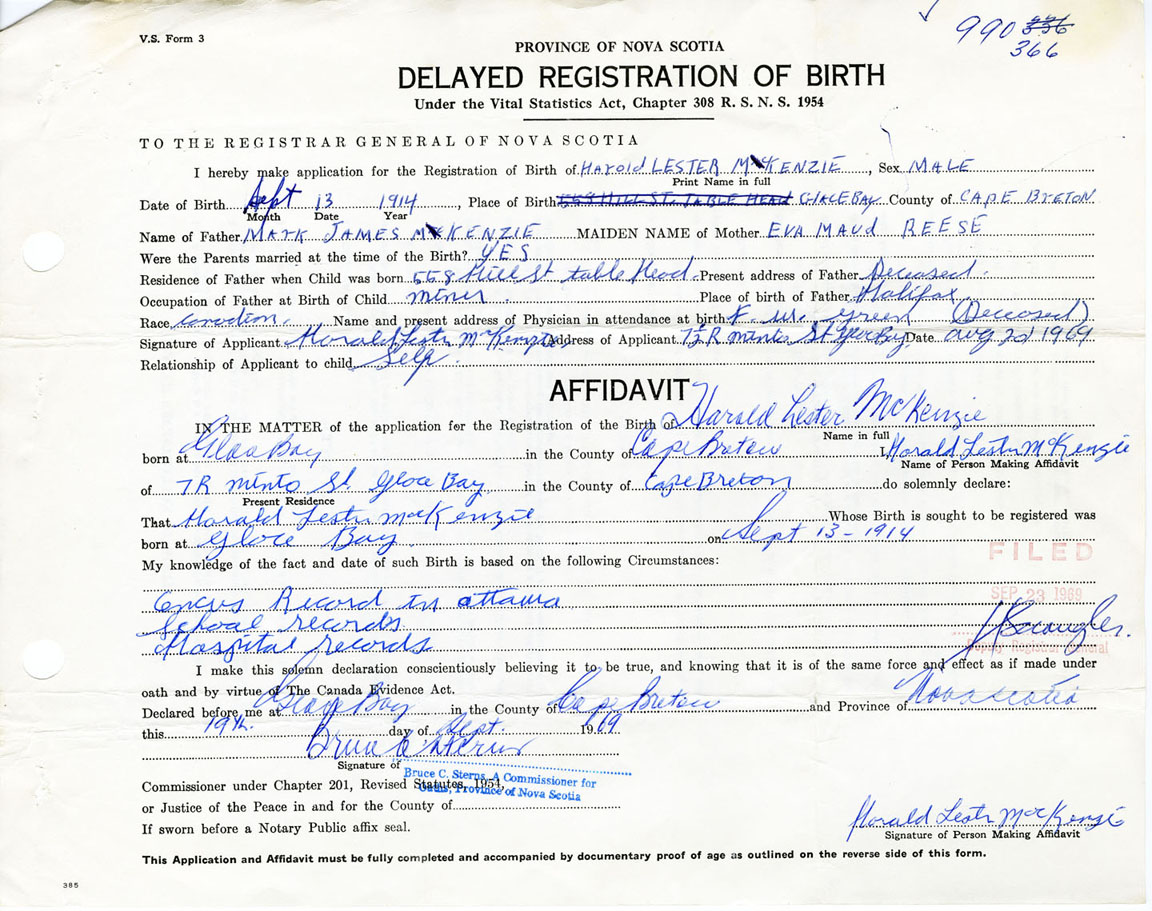 V.S. Form 3
990 336
366
PROVINCE OF NOVA SCOTIA
DELAYED REGISTRATION OF BIRTH
Under the Vital Statistics Act, Chapter 308 R. S. N. S. 1954
TO THE REGISTRAR GENERAL OF NOVA SCOTIA
I hereby make application for the Registration of Birth of Harold LESTER McKENZIE, Sex MALE
Print Name in full
Date of Birth Sept 13 1914, Place of Birth 558 HILL ST. TABLE HEAD GLACE BAY County of CAPE BRETON
Month Date Year
Name of Father MARK JAMES McKENZIE MAIDEN NAME of Mother EVA MAUd REESE
Were the Parents married at the time of the Birth? YES
Residence of Father when Child was born 558 Hill St table Head Present address of Father Deceased.
Occupation of Father at Birth of Child miner Place of birth of Father Halifax
Race Canadian. Name and present address of Physician in attendance at birth Green (Deceased)
Signature of Applicant Harald Lester McKenzie Address of Applicant 7R minto St Glace Bay Date aug 22 1969
Relationship of Applicant to child Self
AFFIDAVIT
IN THE MATTER of the application for the Registration of the Birth of Harald Lester McKenzie
Name in full
born at Glace Bay in the County of Cape Breton I, Harald Lester McKenzie
Name of Person Making Affidavit
of 7R minto St. Glace Bay in the County of Cape Breton do solemnly declare:
Present Residence
That Harald Lester McKenzie Whose Birth is sought to be registered was
born at Glace Bay on Sept 13-1914
FILED
My knowledge of the fact and date of such Birth is based on the following Circumstances:
SEP 23 1969
Cencus Record in ottawa
School records
Hospital records
Deputy Registrar General
I make this solemn declaration conscientiously believing it to be true, and knowing that it is of the same force and effect as if made under
oath and by virtue of The Canada Evidence Act.
Declared before me at Glace Bay in the County of Cape Breton and Province of Nova Scotia
this 19th day of Sept. 1969
Bruce C Sterns
Signature of
Bruce C. Sterns, A Commissioner for
Oaths, Province of Nova Scotia
Commissioner under Chapter 201, Revised Statutes, 1954,
or Justice of the Peace in and for the County of
If sworn before a Notary Public affix seal.
Harald Lester McKenzie
Signature of Person Making Affidavit
This Application and Affidavit must be fully completed and accompanied by documentary proof of age as outlined on the reverse side of this form.
385